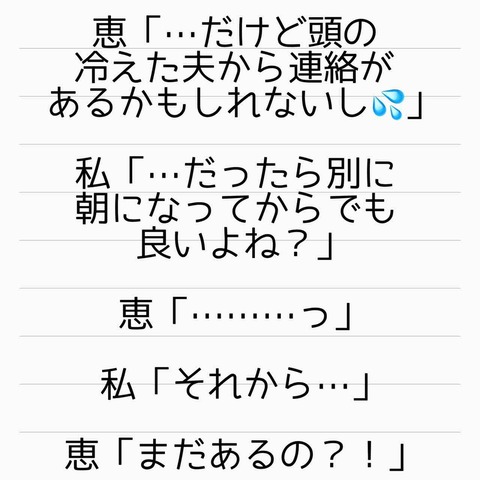 恵「…だけど頭の
冷えた夫から連絡が
あるかもしれないし💦」
私「…だったら別に
朝になってからでも
良いよね？」
恵「………っ」
私「それから…」
恵「まだあるの？！」